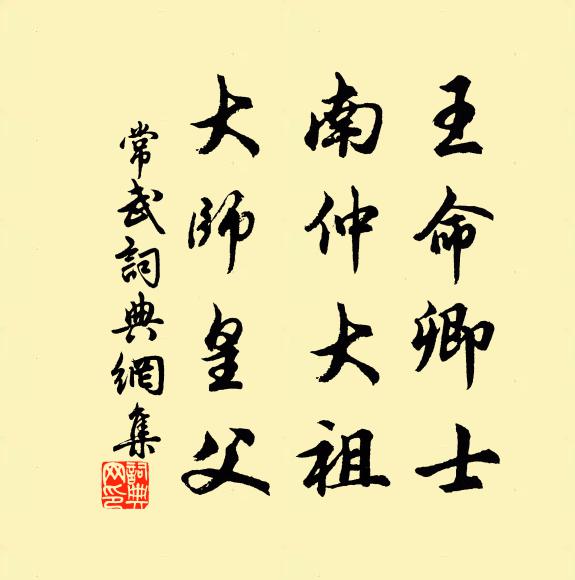 王命卿士
南仲大祖
大師皇父
常武詞典網集
詞典網印